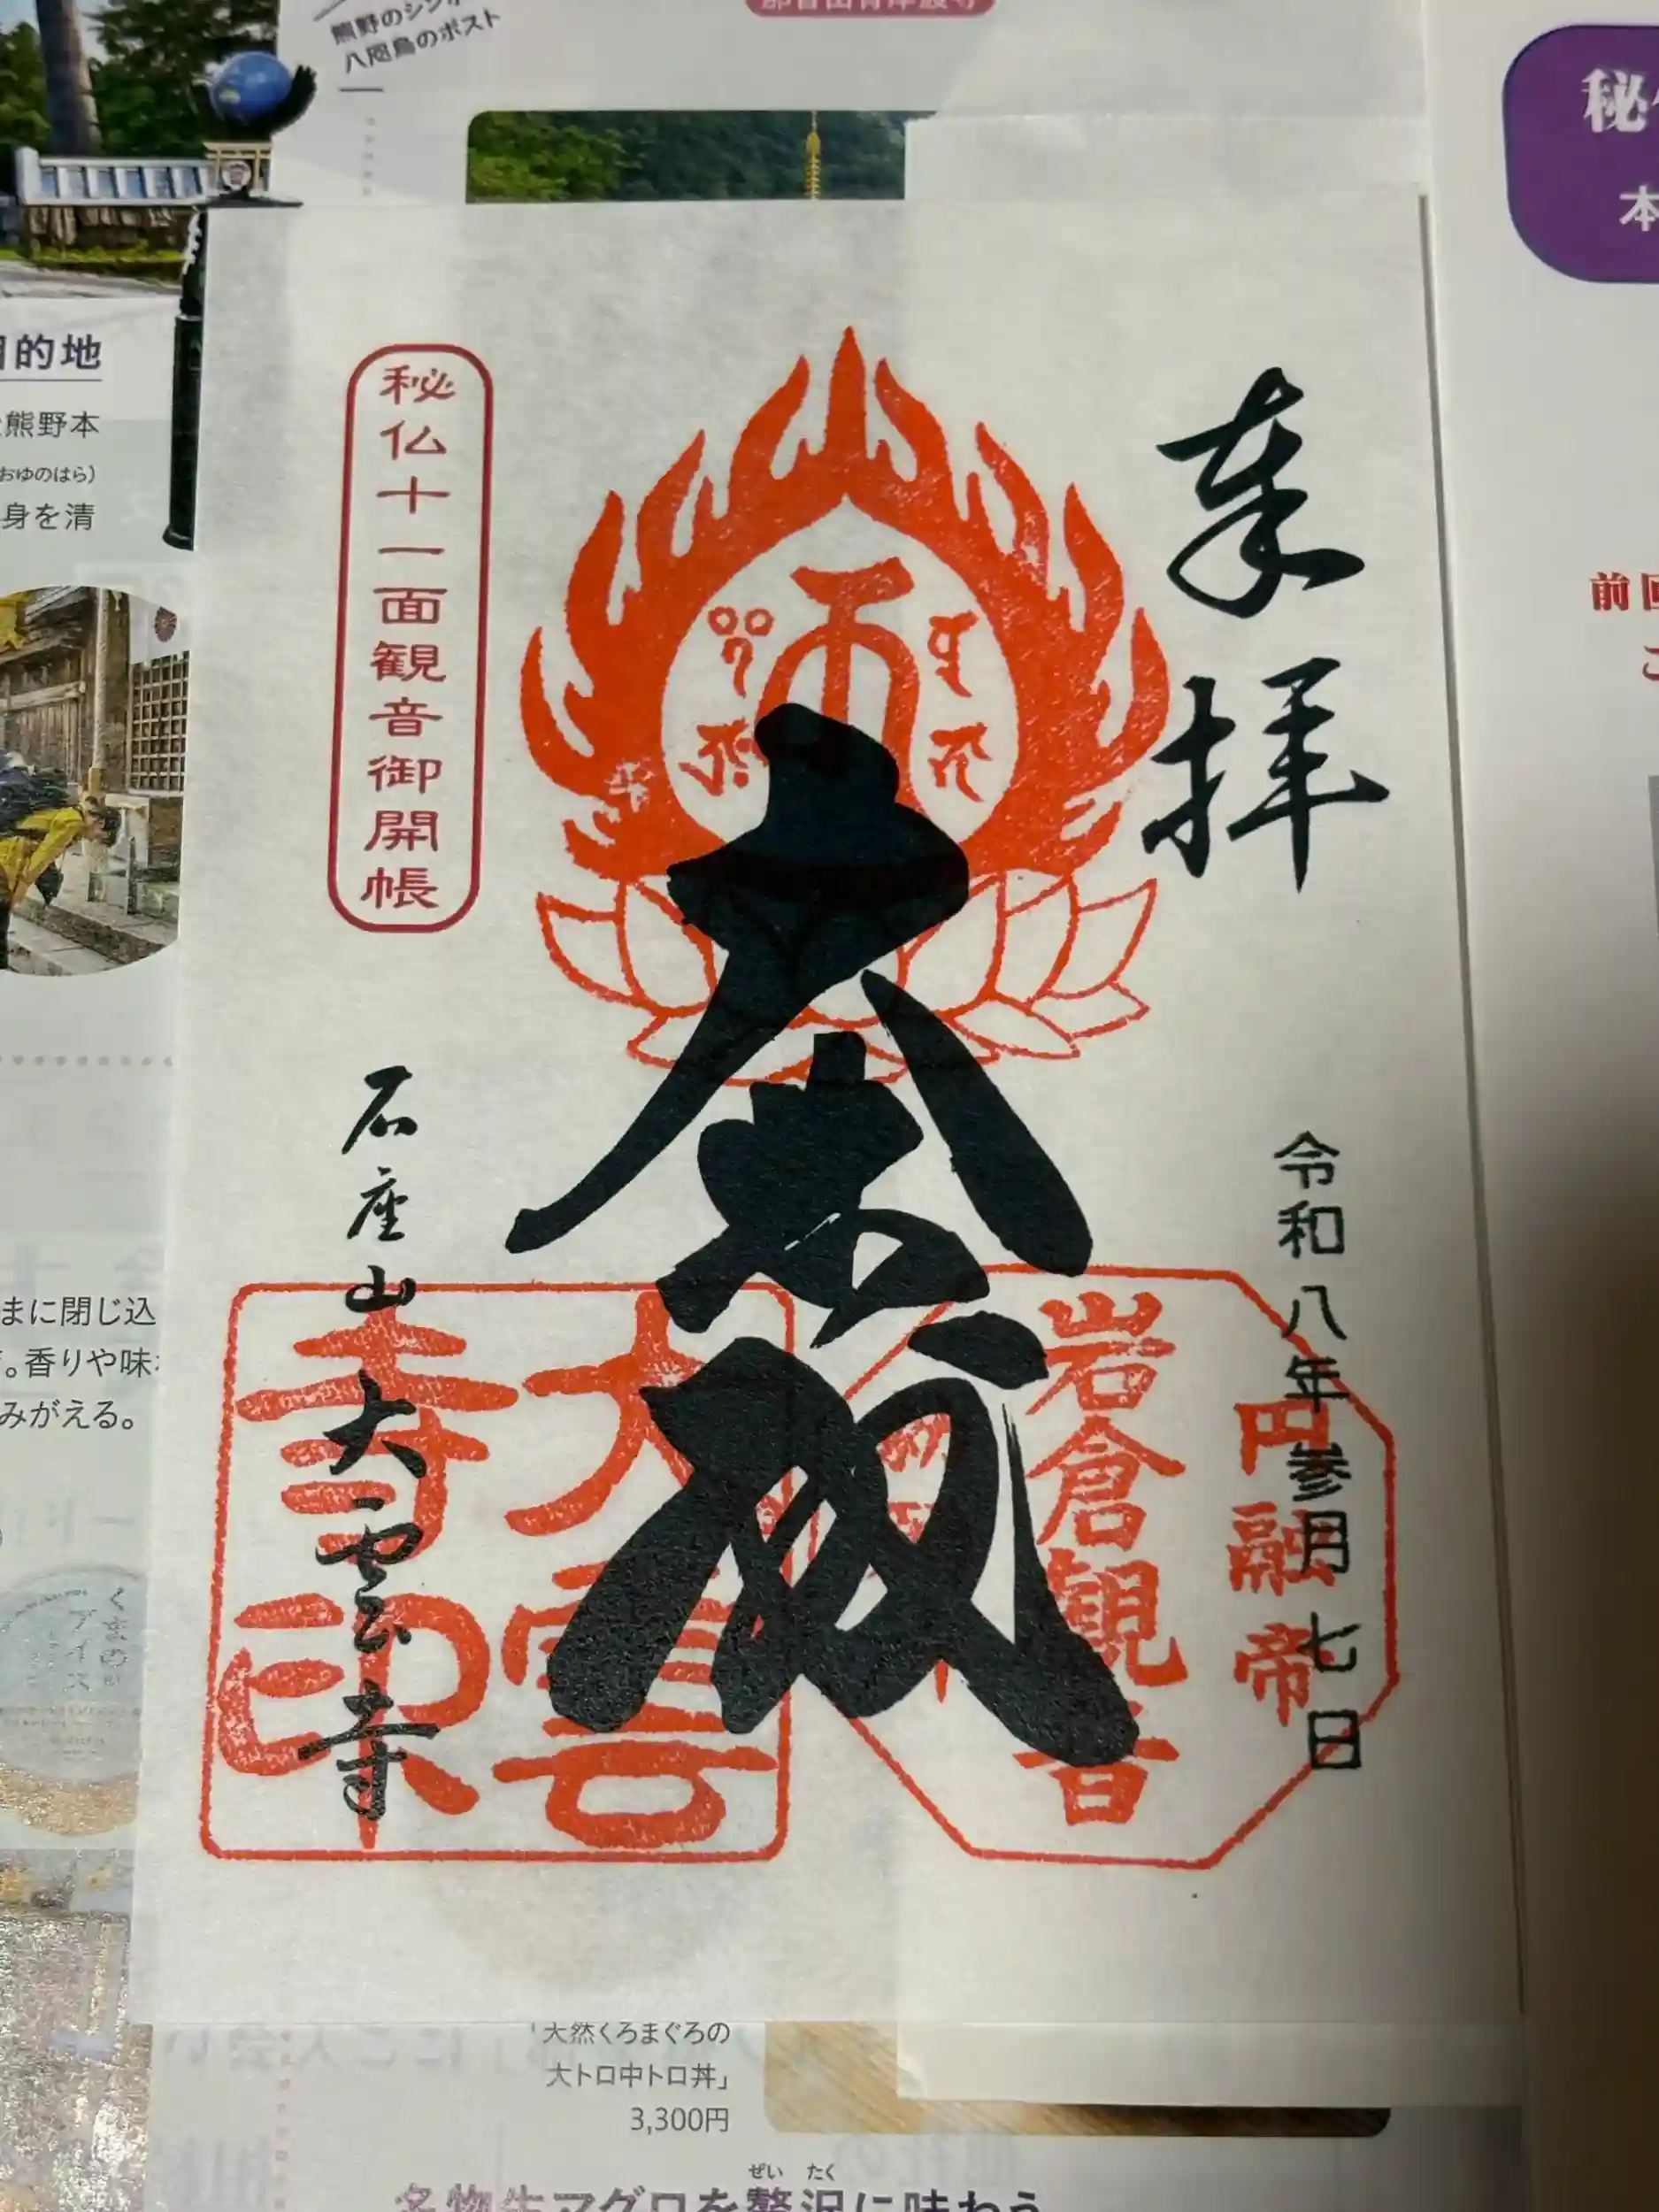 熊野のシンボ
八咫烏のポスト
秘
本
前回
こ
目的地
熊野本
おゆのはら)
身を清
奉拝
令和八年参月七日
秘仏十一面観音御開帳
大悲殿
石座山大雲寺
岩倉観音
円融帝
大雲
寺印
まに閉じ込
。香りや味
みがえる。
くまの
アイス
「天然くろまぐろの
大トロ中トロ丼」
3,300円
ぜい たく
名物生マグロを贅沢に味わう